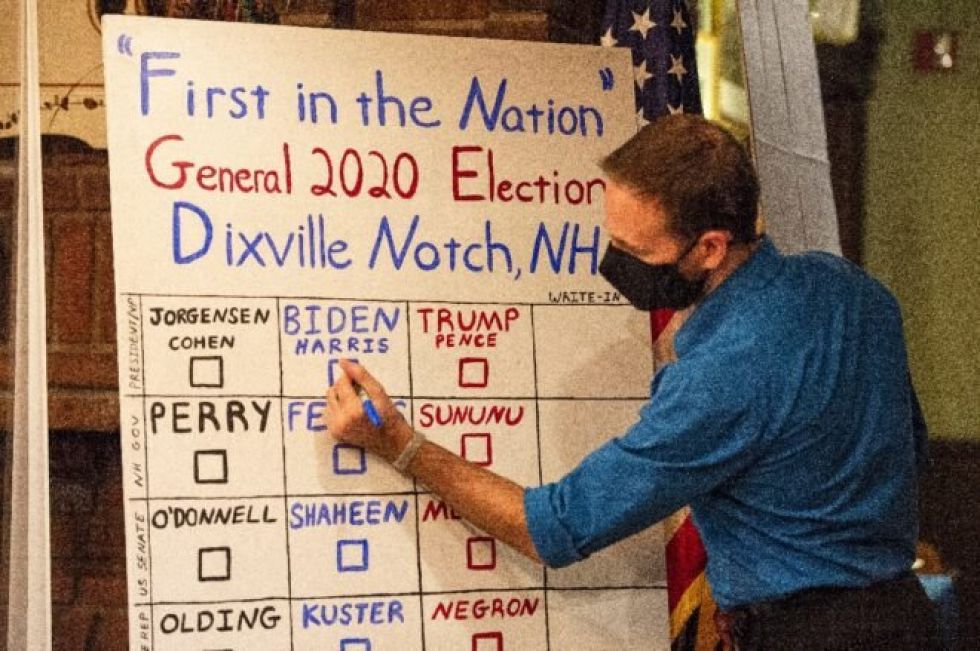 "First in the Nation"
General 2020 Election
Dixville Notch, NH
WRITE-IN
PRESIDENT/VP
JORGENSEN
COHEN
BIDEN
HARRIS
TRUMP
PENCE
NH GOV
PERRY
SUNUNU
US SENATE
O'DONNELL
SHAHEEN
REP
OLDING
KUSTER
NEGRON